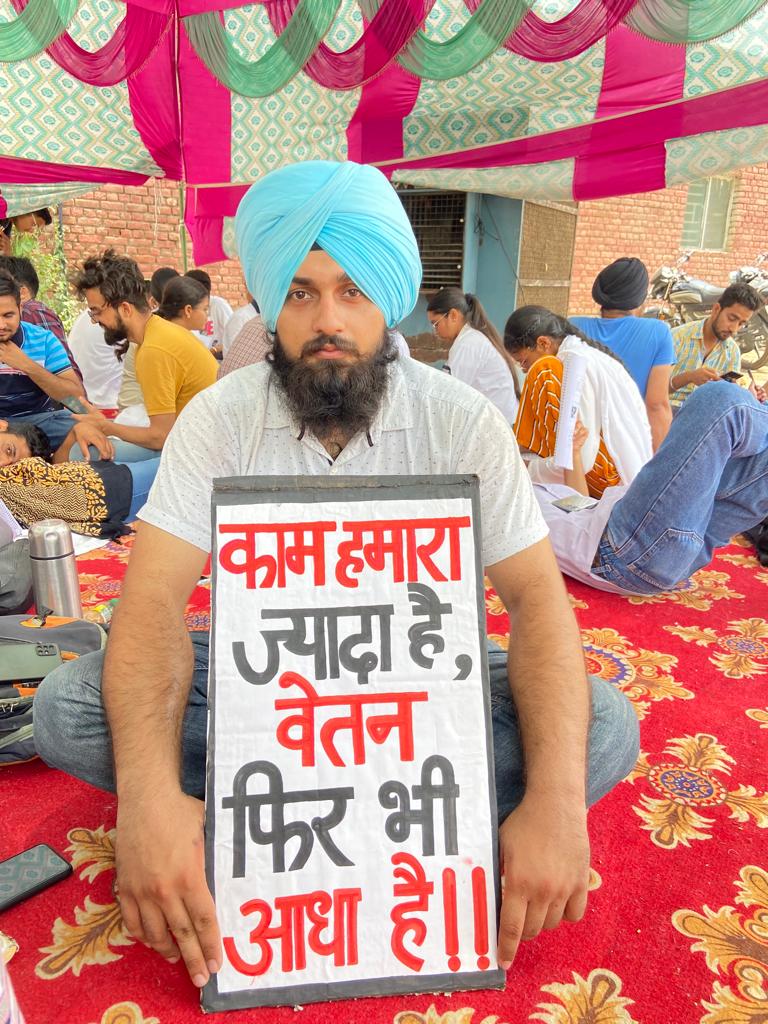 काम हमारा
ज्यादा है,
वेतन
फिर भी
आधा है!!